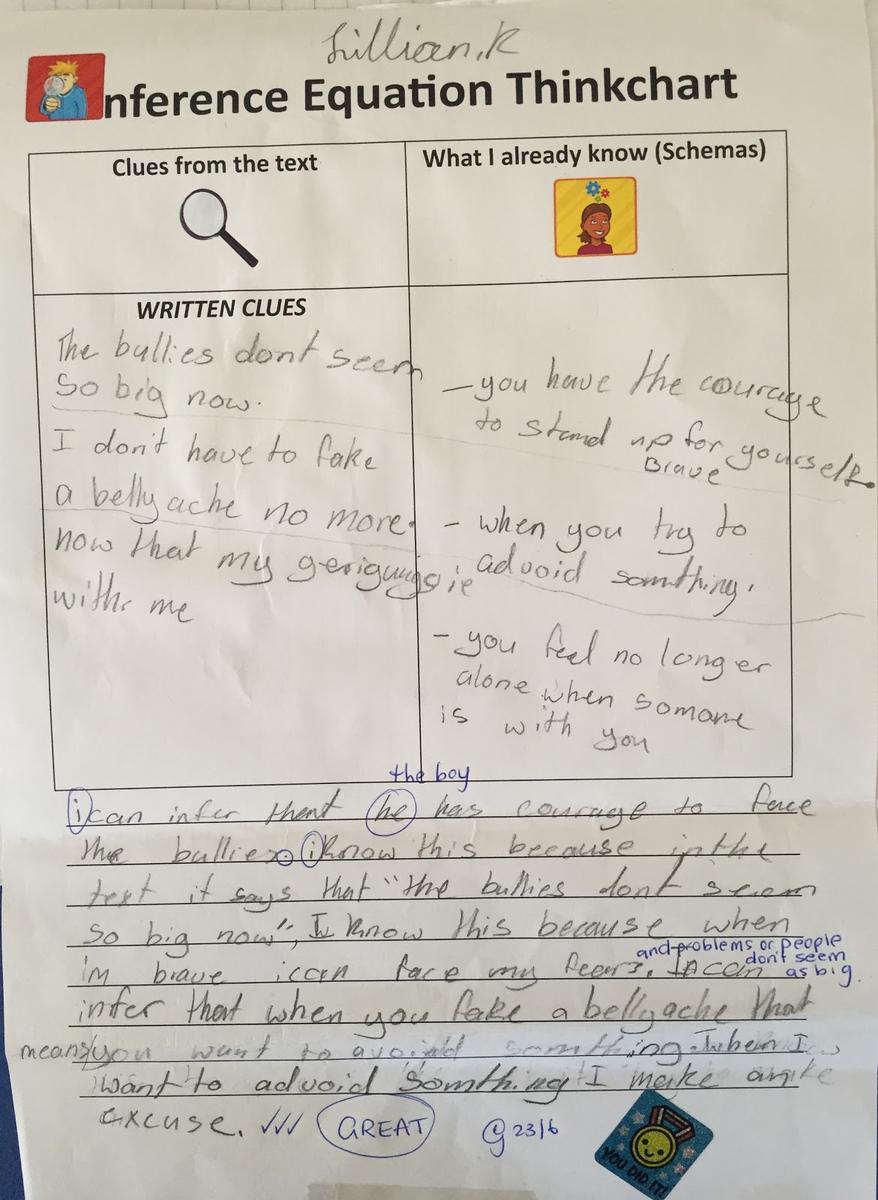 Lillian.K
nference Equation Thinkchart
Clues from the text
What I already know (Schemas)
WRITTEN CLUES
The bullies dont seem
so big now.
I don't have to fake
a belly ache no more.
now that my
with me
- you have the courage
to stand up for yourself.
Brave
- when you try to
advoid somthing.
- you feel no longer
alone when somone
is with you
the boy
i can infer that he has courage to face
the bullies. i know this because in the
text it says that "the bullies dont seem
so big now", I know this because when
and problems or people
don't seem
as big.
im brave i can face my fears. I can
infer that when you fake a belly ache that
means you want to avoid somthing. when I
want to advoid somthing I make
excuse. ✓✓✓ GREAT 23/6
YOU DID IT!